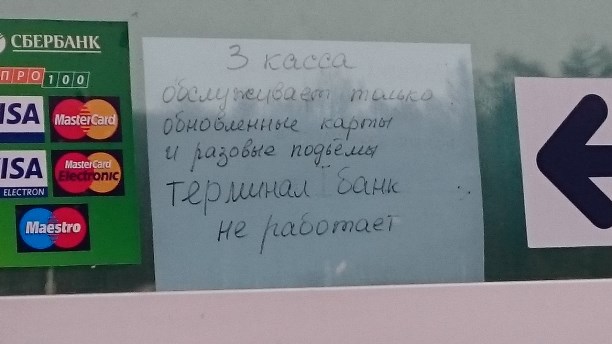 СБЕРБАНК
ПРО100
VISA
MasterCard
VISA
ELECTRON
MasterCard
Electronic
Maestro
3 касса
обслуживает только
обновленные карты
и разовые подъёмы
терминал банк
не работает